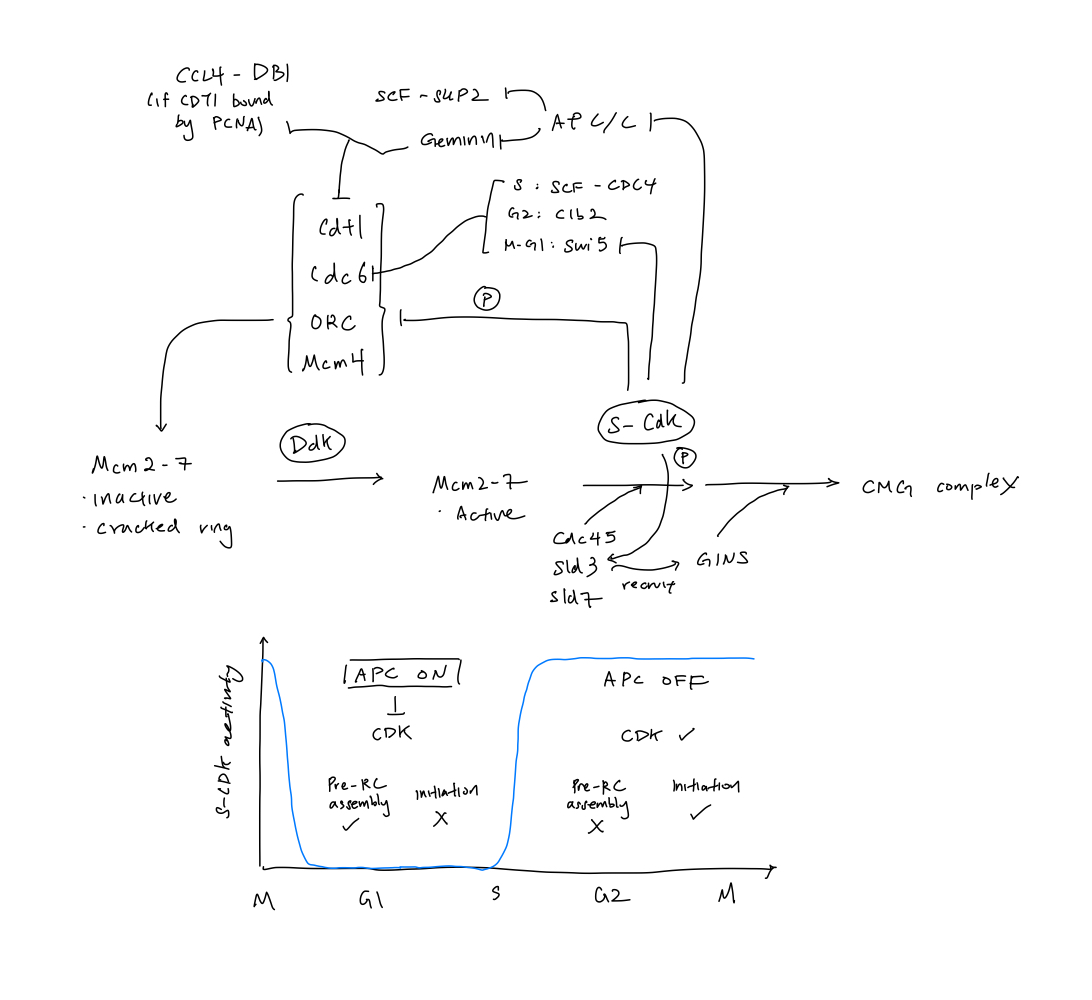 CCL4 - DB1
(if CDT1 bound
by PCNA)
SCF - SKP2
APC/C
Geminin
S : SCF - CDC4
G2: Clb2
M-G1: Swi5
Cdt1
Cdc6
ORC
Mcm4
P
Ddk
S-Cdk
P
Mcm2-7
· inactive
· cracked ring
Mcm2-7
· Active
CMG complex
Cdc45
Sld3
Sld7
recruit
GINS
S-CDK activity
APC ON
CDK
Pre-RC
assembly
✓
initiation
X
APC OFF
CDK ✓
Pre-RC
assembly
X
Initiation
✓
M
G1
S
G2
M